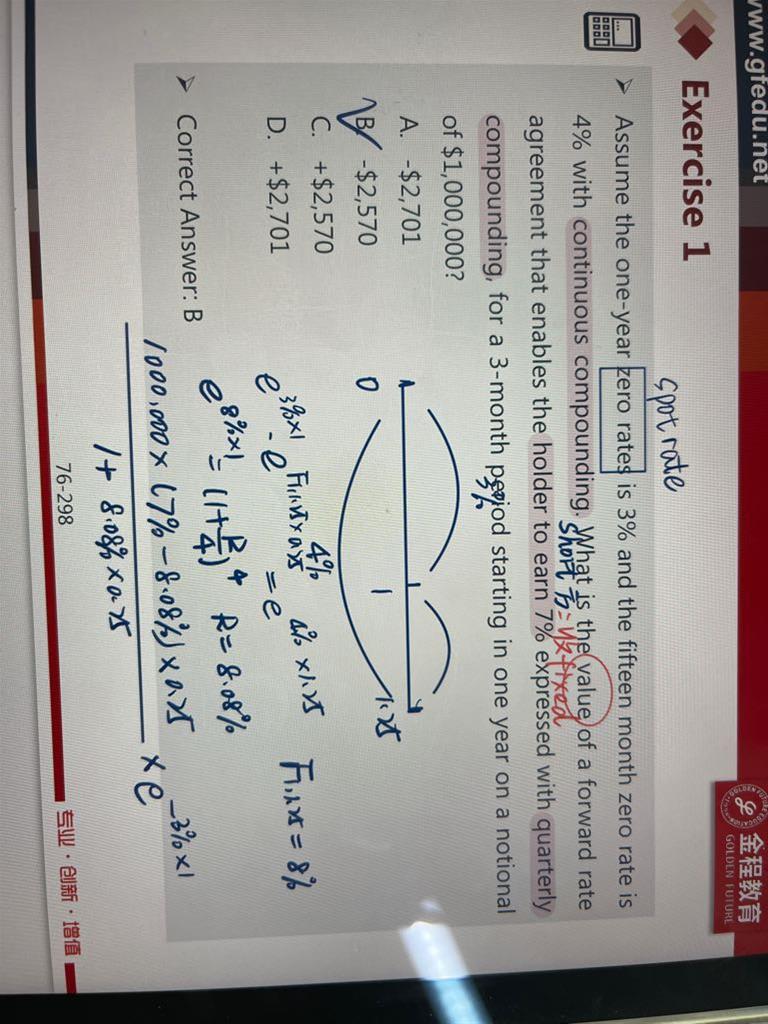 www.gfedu.net
金程教育
GOLDEN FUTURE
Exercise 1
spot rate
➢ Assume the one-year zero rates is 3% and the fifteen month zero rate is
4% with continuous compounding. What is the value of a forward rate
short 方=收fixed
agreement that enables the holder to earn 7% expressed with quarterly
compounding, for a 3-month period starting in one year on a notional
3%
of $1,000,000?
A. -$2,701
B. -$2,570
C. +$2,570
D. +$2,701
0 1 1.25
4%
e^{3%×1} · e^{F_{1,1.25}×0.25} = e^{4%×1.25} F_{1,1.25}=8%
e^{8%×1} = (1+R/4)^4 R=8.08%
➢ Correct Answer: B
1000,000×(7%-8.08%)×0.25
× e^{-3%×1}
1+ 8.08%×0.25
76-298
专业·创新·增值